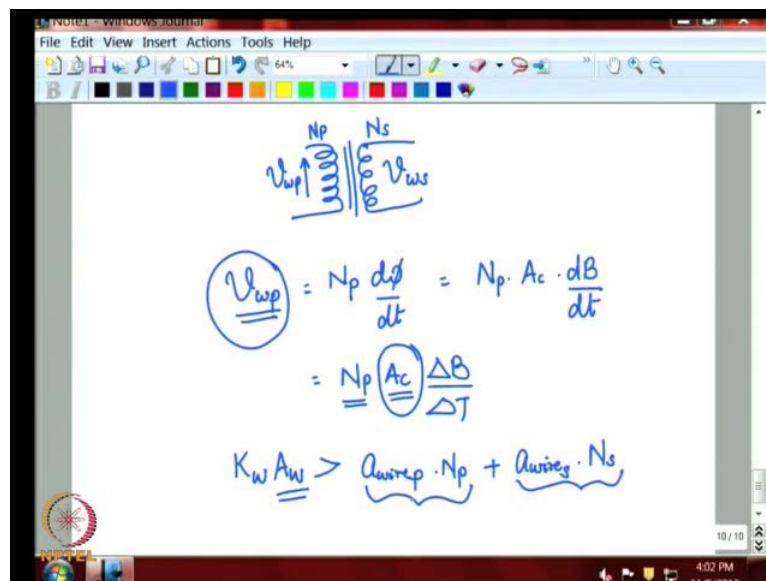 Note1 - Windows Journal
File Edit View Insert Actions Tools Help
64%
B I
Np Ns
Vwp Vws
Vwp = Np dϕ/dt = Np. Ac. dB/dt
= Np Ac ΔB/ΔT
Kw Aw > awirep . Np + awires . Ns
10 / 10
NPTEL
4:02 PM